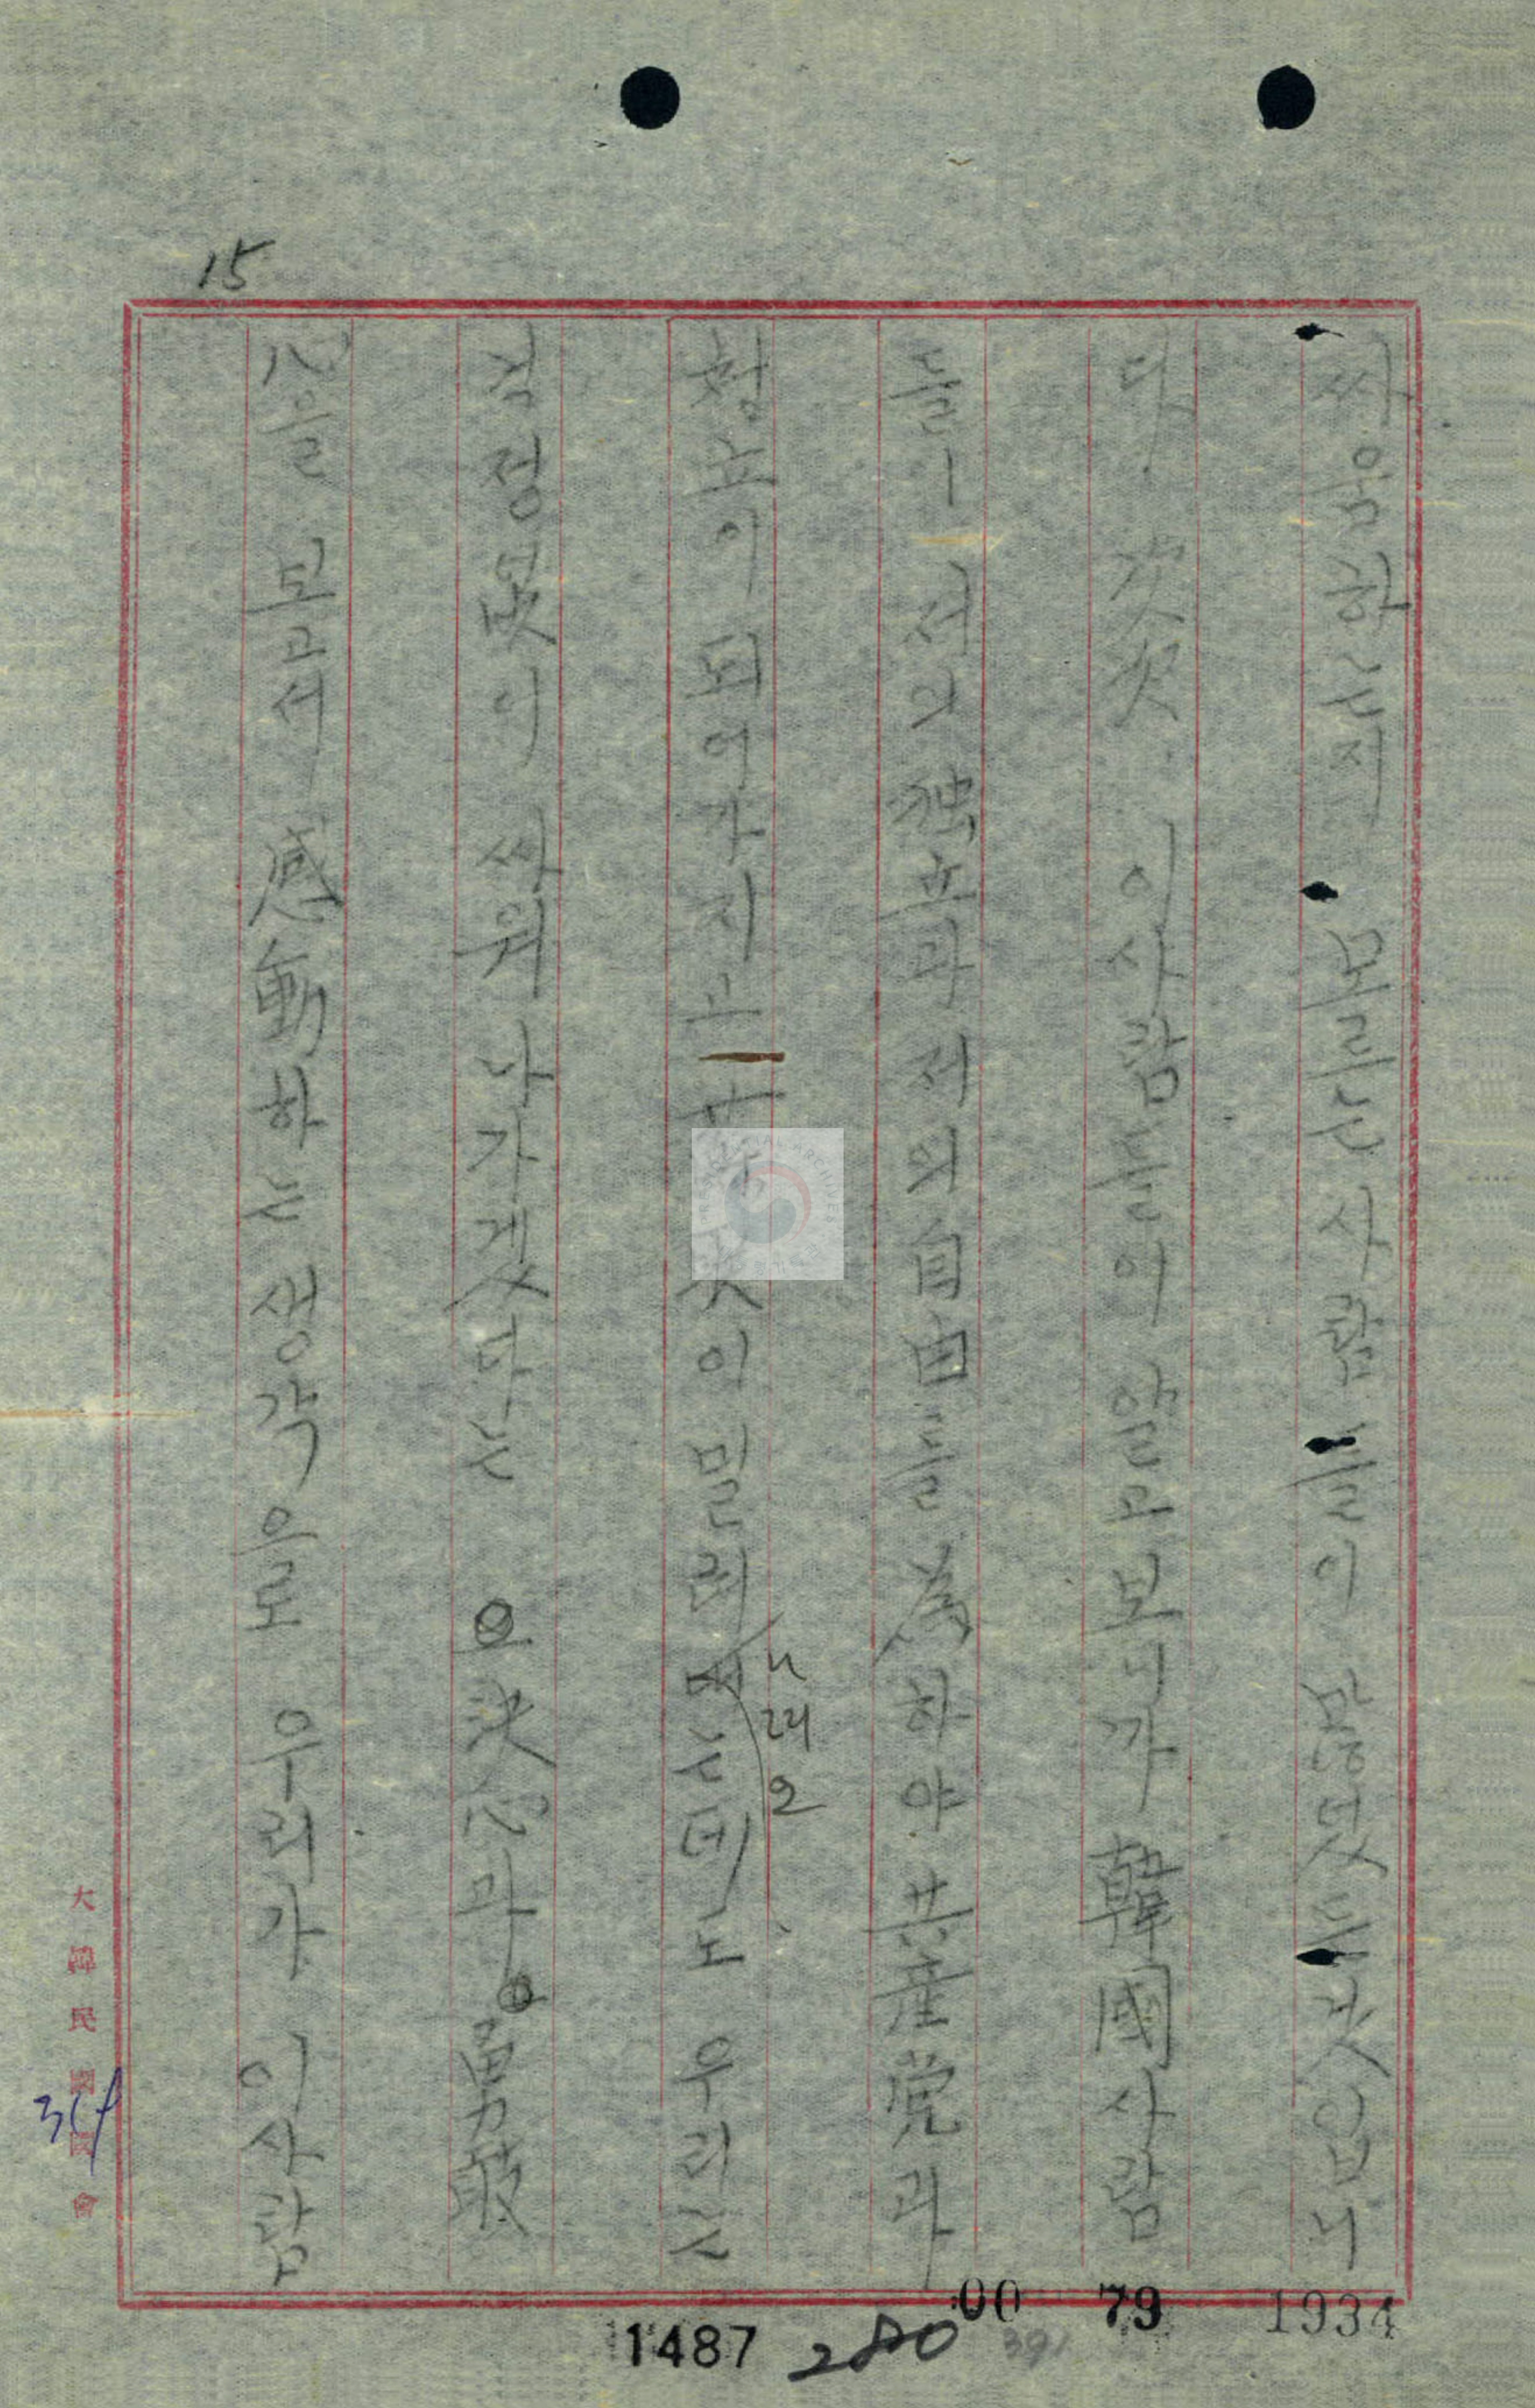 15
싸움하는지 모르는 사람들이 많엇든 것입니
다. 次次 이사람들이 알고보니까 韓國사람
들一 저의 独立과 저의 自由를 爲하야 共産党과
현노이 되여가지고
이 밀려 는데도 우리는
니래오
작정몿이 싸워 나가겟다는 으 決心과 勇敢
心을 보고서 感動하는 생각으로 우리가 이사람
大韓民國國會
:00 79 1934
1487 280 391